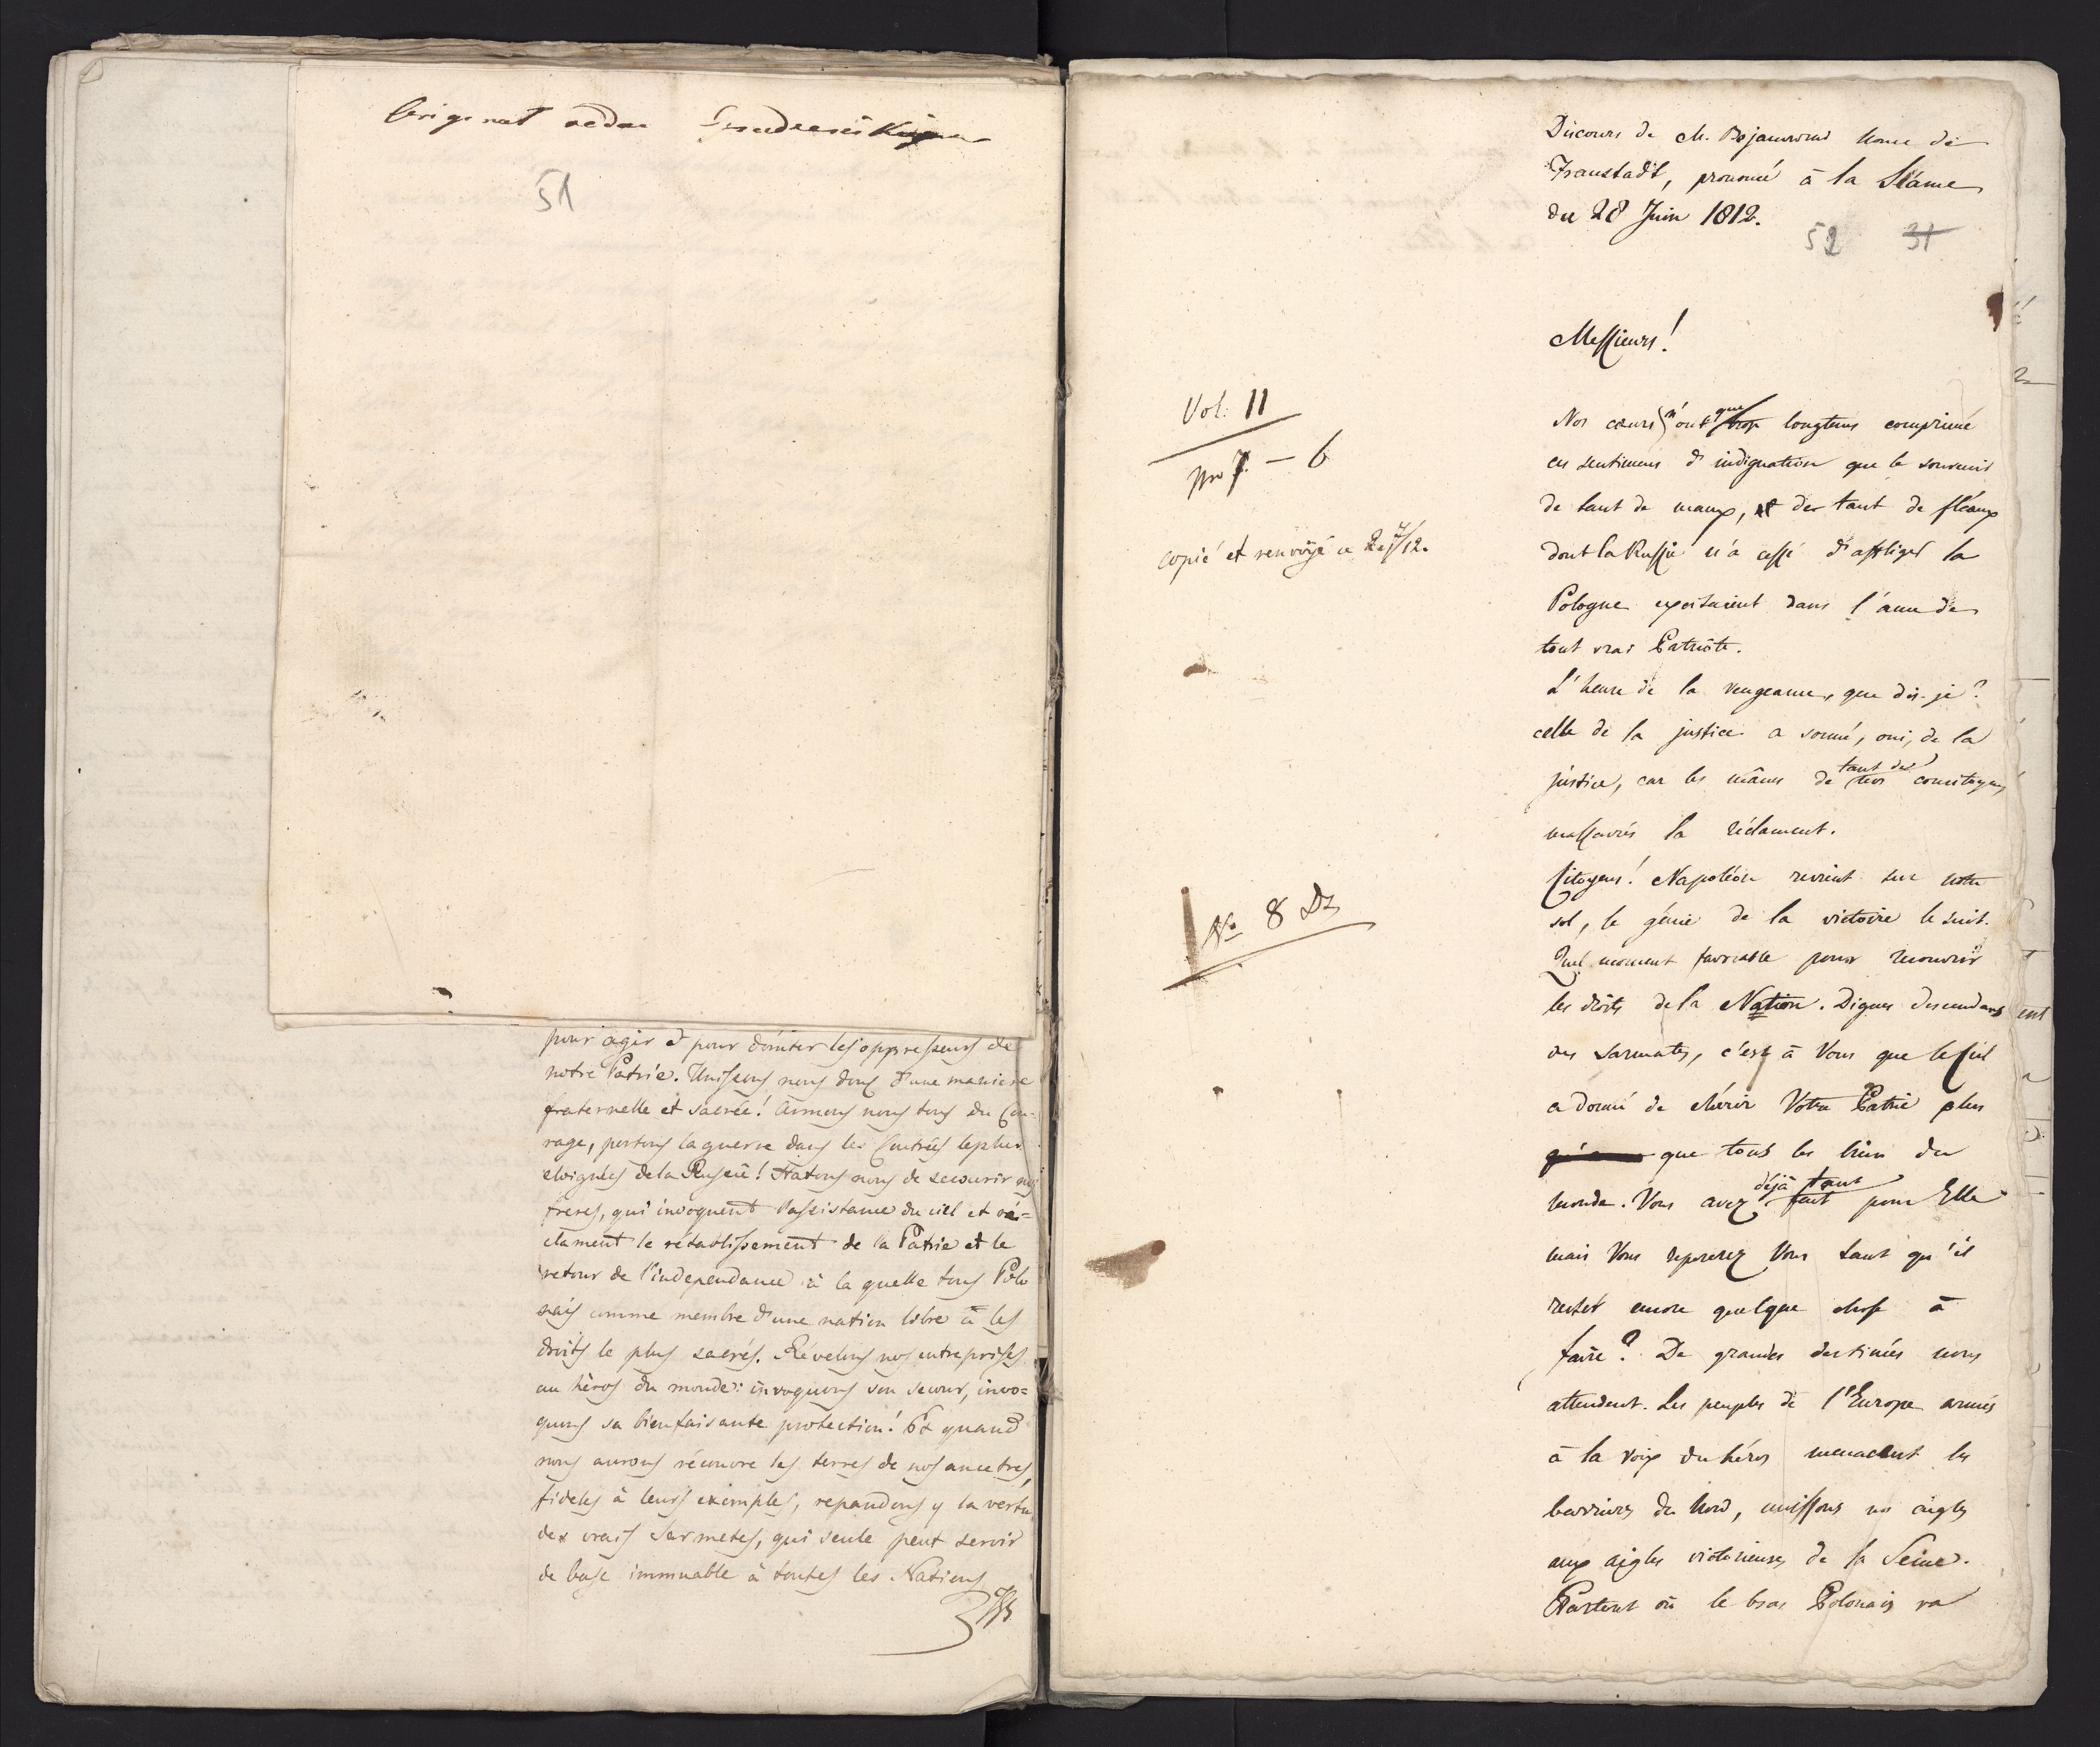 51
pour agir & pour domter les oppresseurs de
notre Patrie. Unissons nous donc d'une maniere
fraternelle et sacrée! Armons nous tous du Cou-
rage, portons la guerre dans les Contrées les plus
eloignées de la Russie! Hatons nous de secourir nos
freres, qui invoquent l'assistance du ciel et ré=
clament le rétablissement de la Patrie et le
retour de l'independance à la quelle tous Polo
nais comme membre d'une nation libre à les
droits le plus sacrés. Révelons nos entreprises
au héros du monde: invoquons son secour, invo=
quons sa bienfaisante protection! Et quand
nous aurons récouvre les terres de nos ancetres,
fideles à leurs exemples, repandons y la vertu
des vrais Sarmetes, qui seule peut servir
de base immuable à toutes les Nations
Discours de M. Nonce de
Fraustadt, prononcé à la Séance
du 28 Juin 1812.
52 31
Messieurs!
Vol. 11
No 7. – 6
copié et renvoyé
No 8
Nos cœurs n'ont que trop longtems comprimé
ces sentimens d'indignation que le souvenir
de tant de maux, et de tant de fléaux
dont la Russie n'a cessé d'affliger la
Pologne excitaient dans l'ame de
tout vrai Patriote.
L'heure de la vengeance, que dis-je?
celle de la justice a sonné, oui, de la
justice, car les mânes de tant de nos concitoyens
massacrés la réclament.
Citoyens! Napoléon revient sur notre
sol, le génie de la victoire le suit.
Quel moment favorable pour recouvrir
les droits de la Nation. Dignes descendans
des Sarmates, c'est à Vous que le Ciel
a donné de chérir Votre Patrie plus
que tous les biens du
monde. Vous avez déjà tant fait pour Elle
mais Vous reposerez Vous tant qu'il
restet encore quelque chose à
faire? De grandes destinées nous
attendent. Les peuples de l'Europe armés
à la voix du héros menacent les
barrieres du Nord, unissons nos aigles
aux aigles victorieuses de la Seine.
Partout où le bras Polonais va